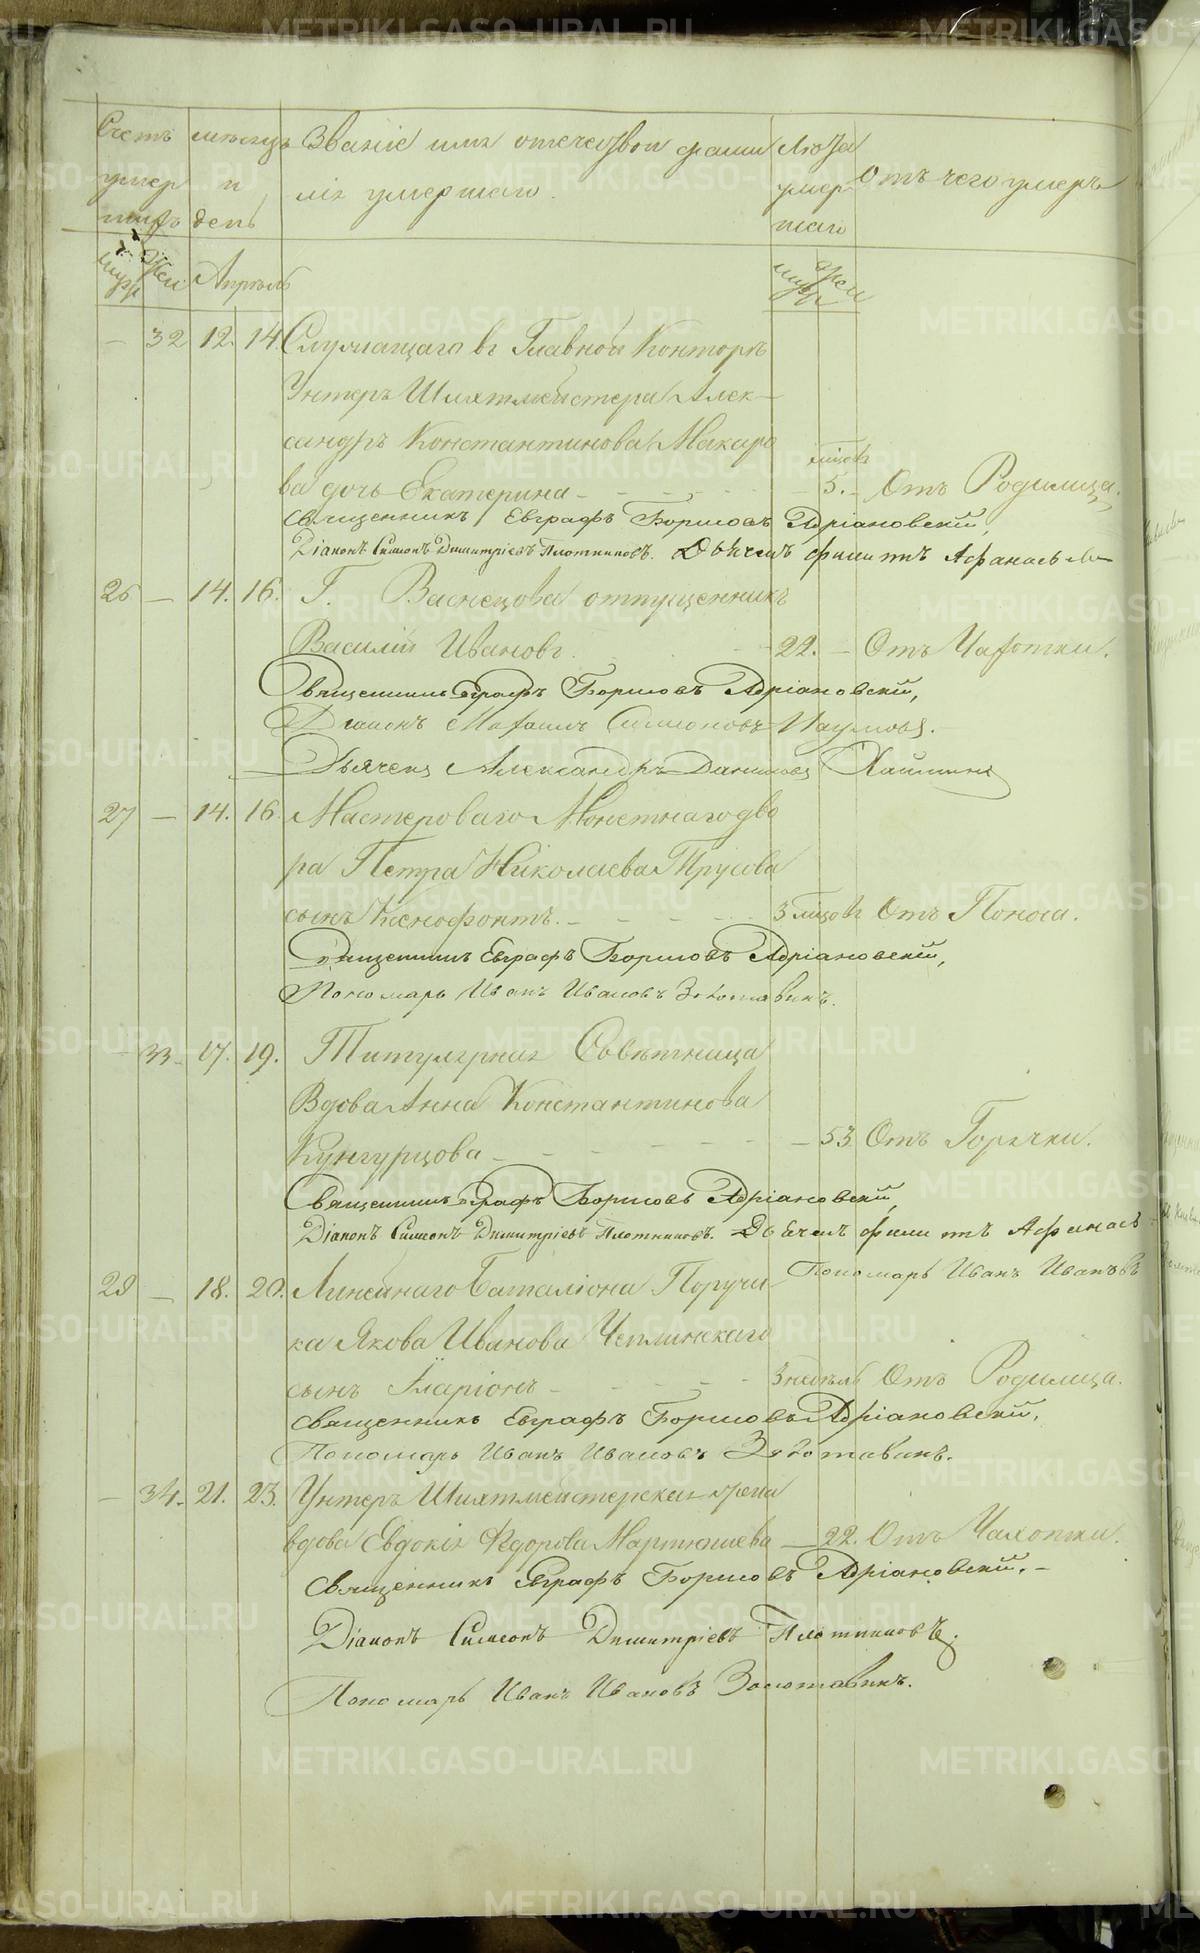 Счетъ мѣсяцъ Званіе имя отечество и фами Лѣта
умер и лія умершаго. умер Отъ чего умеръ
шихъ день шаго
муж жен Апрѣль муж жен
— 32 12. 14. Служащаго въ Главной Конторѣ
Унтеръ Шихтмейстера Алек-
сандръ Константинова Макаро
мѣсцовъ
ва дочь Екатерина - - - - 5. - Отъ Родилица.
Священникъ Евграфъ Борисовъ Адріановскій,
Діаконъ Симеонъ Димитріевъ Плотниковъ. Дьячекъ Филиппъ Афанасьев
26 — 14. 16. Г. Васнецова отпущенникъ
Василій Ивановъ. 22. — Отъ Чахотки.
Священникъ Евграфъ Борисовъ Адріановскій,
Діаконъ Михаилъ Симеоновъ Наумовъ.
Дьячекъ Александръ Даниловъ
27 — 14. 16. Мастероваго Монетнаго дво
ра Петра Николаева Трусова
сынъ Ксенофонтъ. - - - - 3 мѣцовъ Отъ Поноса.
Священникъ Евграфъ Борисовъ Адріановскій,
Пономарь Иванъ Ивановъ Золотавинъ.
— 33 — 17. 19. Титулярная Совѣтница
Вдова Анна Константинова
Кунгурцова - - - - — 53 Отъ Горячки.
Священникъ Евграфъ Борисовъ Адріановскій,
Діаконъ Симеонъ Димитріевъ Плотниковъ. Дьячекъ Филиппъ Афанасьев
Пономарь Иванъ Ивановъ
28 — 18. 20. Линейнаго Баталіона Поручи
ка Якова Иванова Чеплинскаго
сынъ Иларіонъ - - - - 3 недѣль Отъ Родилица.
Священникъ Евграфъ Борисовъ Адріановскій,
Пономарь Иванъ Ивановъ Золотавинъ.
— 34. 21. 23. Унтеръ Шихтмейстерская жена
вдова Евдокія Федорова Мартышева — 22. Отъ Чахотки.
Священникъ Евграфъ Борисовъ Адріановскій. -
Діаконъ Симеонъ Димитріевъ Плотниковъ.
Пономарь Иванъ Ивановъ Золотавинъ.
METRIKI.GASO-URAL.RU